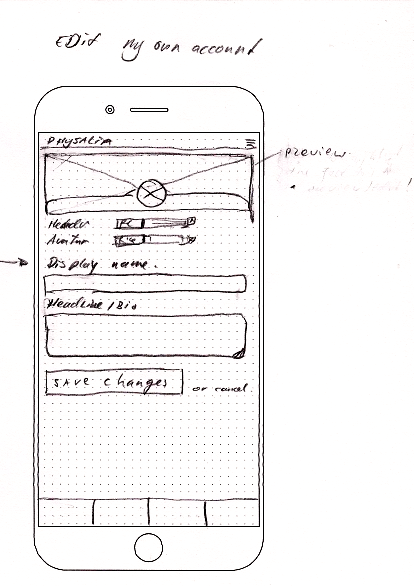 EDit my own account
PHYSALIA
preview.
Header
Avatar
Display name.
Headline / Bio
SAVE changes or cancel.